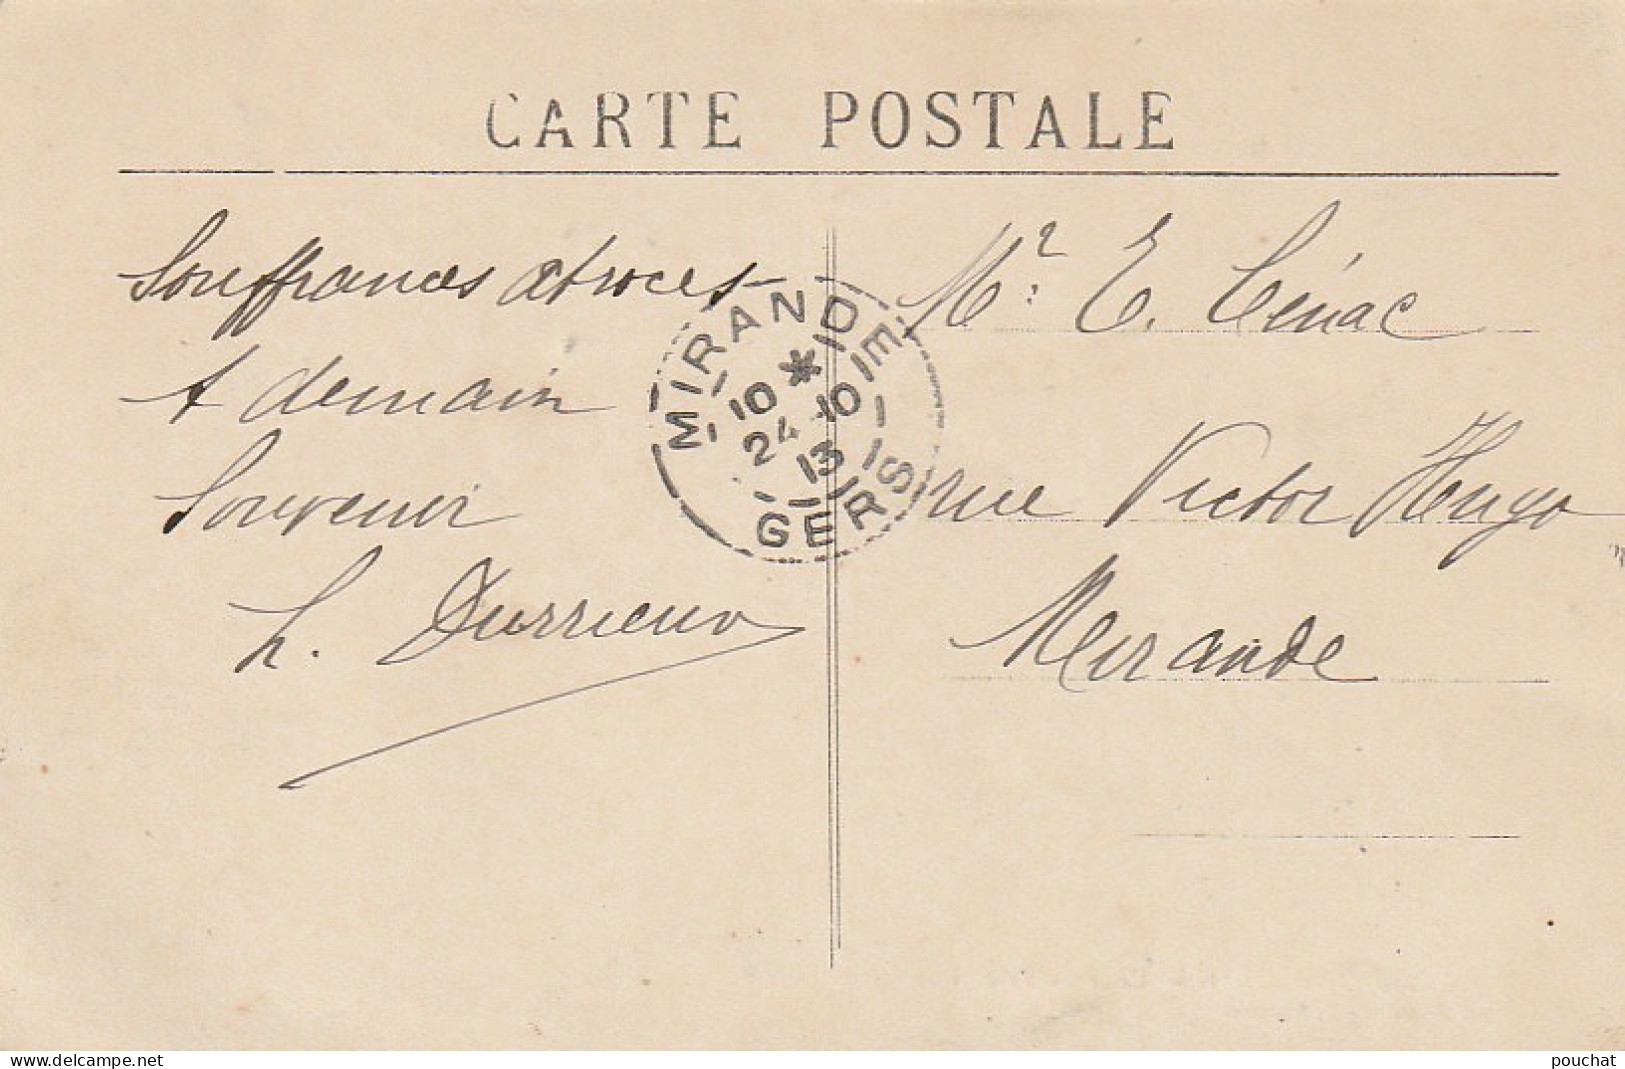 CARTE POSTALE
Souffrances atroces
A demain
Souvenir
L. Durrieux
Mr. E. Cénac
rue Victor Hugo
Mirande
MIRANDE
10 * 10
24 10
13
GERS
www.delcampe.net
pouchat